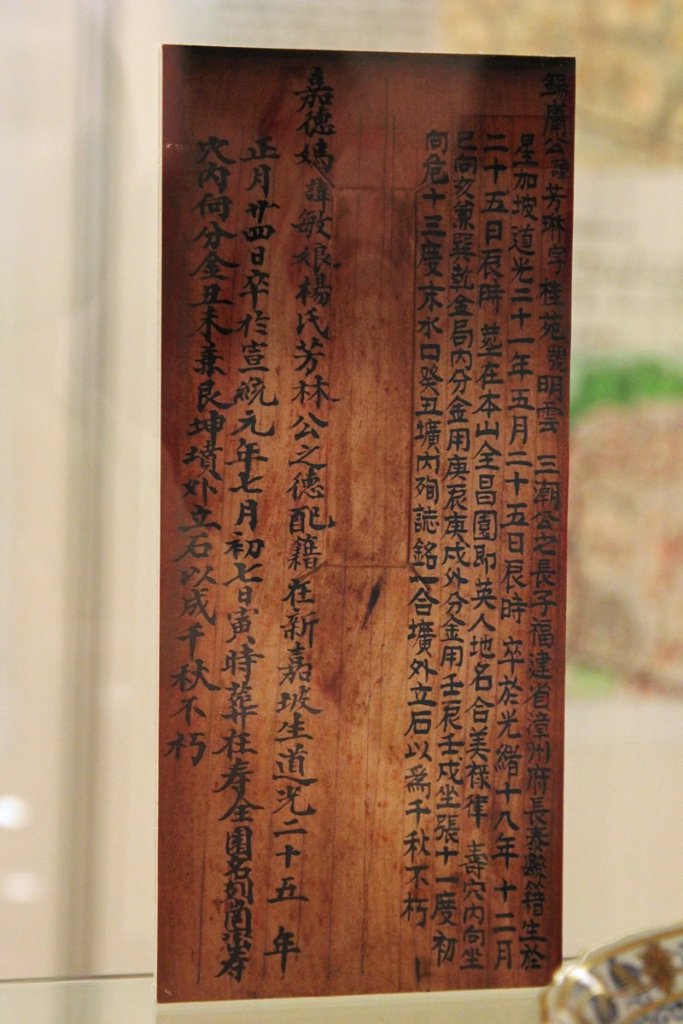 錫庸公諱芳琳字桂苑號明雲 三潮公之長子福建省漳州府長泰縣籍生於
星加坡道光二十一年五月二十五日辰時 卒於光緒十八年十二月
二十五日辰時 塟在本山全昌園即英人地名合美祿律 壽穴內向坐
巳向亥兼巽乾金局內分金用庚辰庚戍外分金用壬辰壬戍坐張十一度 初
向危十三度末水口癸丑壙內殉誌銘一合壙外立石以為千秋不朽
嘉德媽諱敏娘楊氏芳林公之德配籍在新嘉坡生道光二十五年
正月廿四日卒於宣統元年七月初七日寅時葬在壽全園名列
穴內向分金丑未兼艮坤墳外立石以成千秋不朽